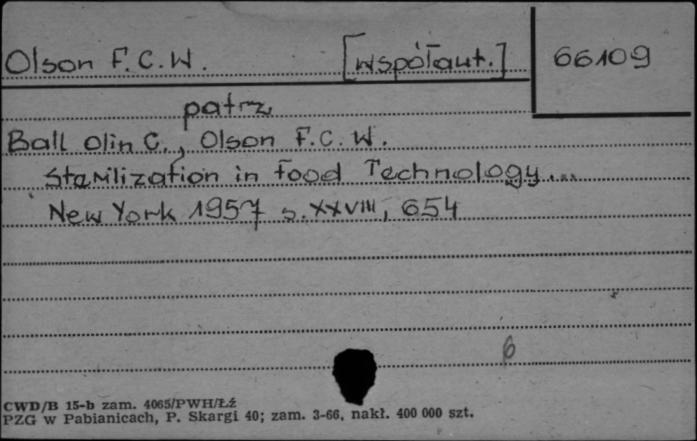 Olson F.C.W. [współaut.] 66109
patrz
Ball Olin C., Olson F.C.W.
Sterilization in food Technology...
New York 1957 s. XXVIII, 654
6
CWD/B 15-b zam. 4065/PWH/Łż
PZG w Pabianicach, P. Skargi 40; zam. 3-66, nakł. 400 000 szt.